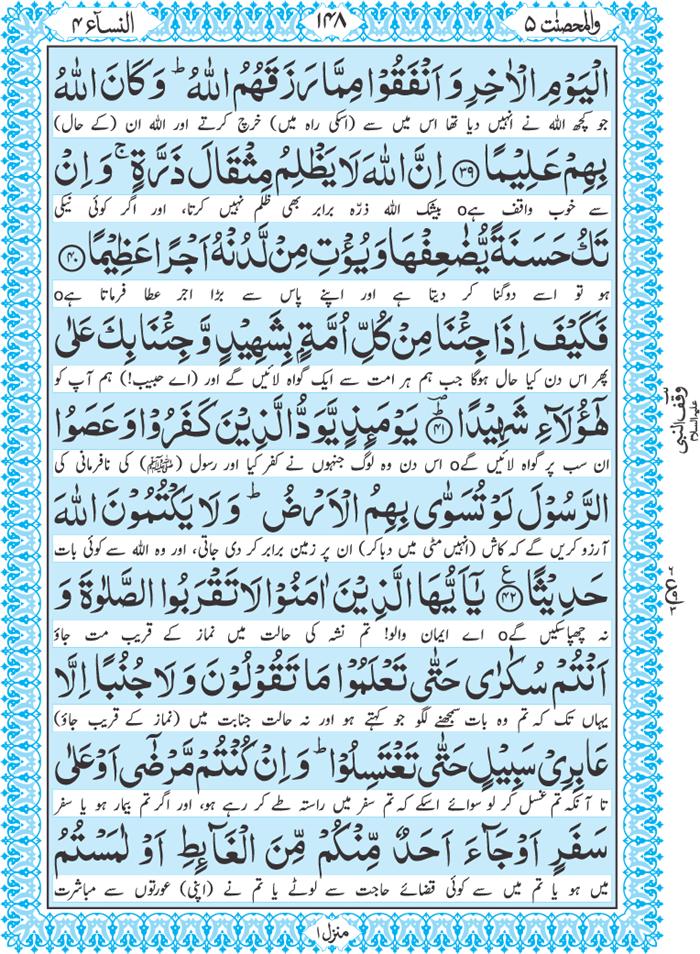 والمحصنت ۵
۱۴۸
النسآء ۴
الْيَوْمِ الْاٰخِرِ وَ اَنْفَقُوْا مِمَّا رَزَقَهُمُ اللّٰهُ ؕ وَ كَانَ اللّٰهُ
جو کچھ اللہ نے انہیں دیا تھا اس میں سے (اسکی راہ میں) خرچ کرتے اور اللہ ان (کے حال)
بِهِمْ عَلِيْمًا ﴿۳۹﴾ اِنَّ اللّٰهَ لَا يَظْلِمُ مِثْقَالَ ذَرَّةٍ ۚ وَ اِنْ
سے خوب واقف ہے٥ بیشک اللہ ذرّہ برابر بھی ظلم نہیں کرتا، اور اگر کوئی نیکی
تَكُ حَسَنَةً يُّضٰعِفْهَا وَ يُؤْتِ مِنْ لَّدُنْهُ اَجْرًا عَظِيْمًا ﴿۴۰﴾
ہو تو اسے دوگنا کر دیتا ہے اور اپنے پاس سے بڑا اجر عطا فرماتا ہے٥
فَكَيْفَ اِذَا جِئْنَا مِنْ كُلِّ اُمَّةٍۭ بِشَهِيْدٍ وَّ جِئْنَا بِكَ عَلٰى
پھر اس دن کیا حال ہوگا جب ہم ہر امت سے ایک گواہ لائیں گے اور (اے حبیب!) ہم آپ کو
هٰۤؤُلَآءِ شَهِيْدًا ﴿۴۱﴾ؕ يَوْمَئِذٍ يَّوَدُّ الَّذِيْنَ كَفَرُوْا وَ عَصَوُا
ان سب پر گواہ لائیں گے٥ اس دن وہ لوگ جنہوں نے کفر کیا اور رسول (ﷺ) کی نافرمانی کی
الرَّسُوْلَ لَوْ تُسَوّٰى بِهِمُ الْاَرْضُ ؕ وَ لَا يَكْتُمُوْنَ اللّٰهَ
آرزو کریں گے کہ کاش (انہیں مٹی میں دبا کر) ان پر زمین برابر کر دی جاتی، اور وہ اللہ سے کوئی بات
حَدِيْثًا ﴿۴۲﴾ يٰۤاَيُّهَا الَّذِيْنَ اٰمَنُوْا لَا تَقْرَبُوا الصَّلٰوةَ وَ
نہ چھپا سکیں گے٥ اے ایمان والو! تم نشہ کی حالت میں نماز کے قریب مت جاؤ
اَنْتُمْ سُكٰرٰى حَتّٰى تَعْلَمُوْا مَا تَقُوْلُوْنَ وَ لَا جُنُبًا اِلَّا
یہاں تک کہ تم وہ بات سمجھنے لگو جو کہتے ہو اور نہ حالت جنابت میں (نماز کے قریب جاؤ)
عَابِرِيْ سَبِيْلٍ حَتّٰى تَغْتَسِلُوْا ؕ وَ اِنْ كُنْتُمْ مَّرْضٰۤى اَوْ عَلٰى
تا آنکہ تم غسل کر لو سوائے اسکے کہ تم سفر میں راستہ طے کر رہے ہو، اور اگر تم بیمار ہو یا سفر
سَفَرٍ اَوْ جَآءَ اَحَدٌ مِّنْكُمْ مِّنَ الْغَآئِطِ اَوْ لٰمَسْتُمُ
میں ہو یا تم میں سے کوئی قضائے حاجت سے لوٹے یا تم نے (اپنی) عورتوں سے مباشرت
منزل ۱
وقف النبی
علیہ السلام